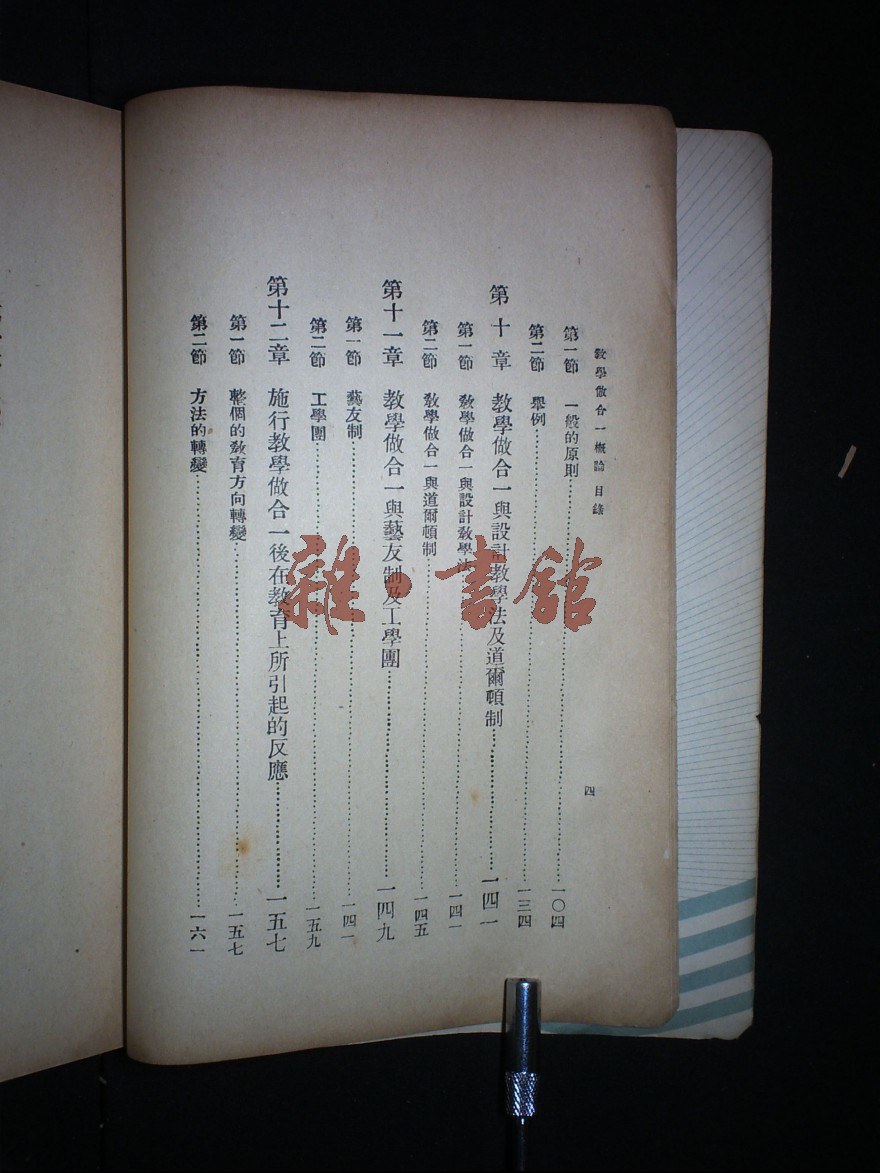 教學做合一概論 目錄 四
第一節 一般的原則 一〇四
第二節 舉例 一三四
第十章 教學做合一與設計教學法及道爾頓制 一四一
第一節 教學做合一與設計教學法 一四一
第二節 教學做合一與道爾頓制 一四五
第十一章 教學做合一與藝友制及工學團 一四九
第一節 藝友制 一四一
第二節 工學團 一五九
第十二章 施行教學做合一後在教育上所引起的反應 一五七
第一節 整個的教育方向轉變 一五七
第二節 方法的轉變 一六一
雜·書館